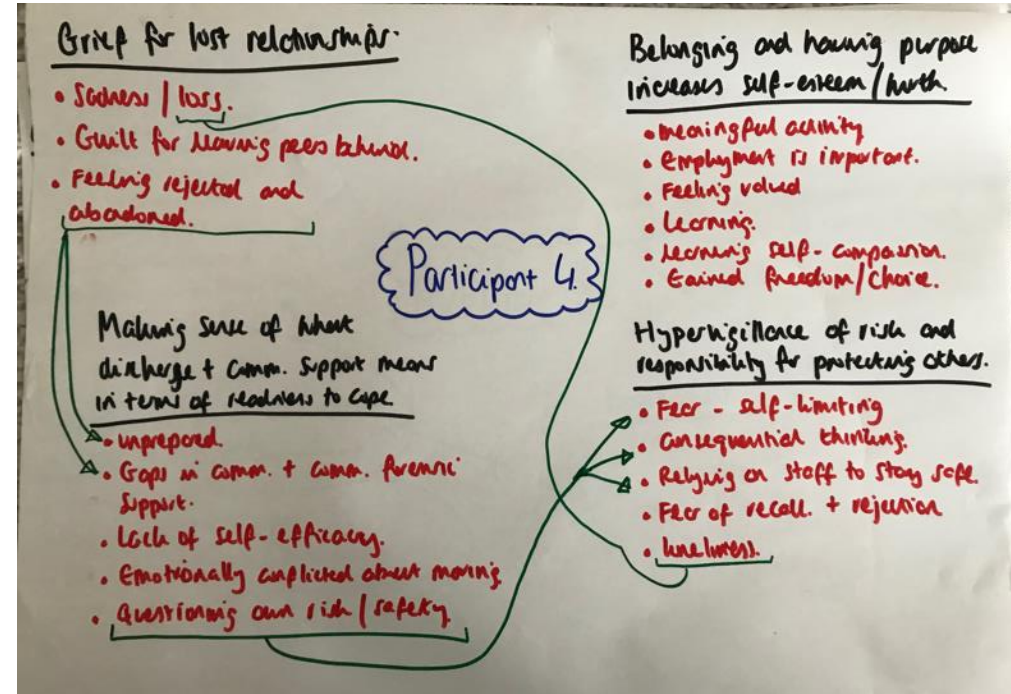 Grief for lost relationships.
• Sadness / loss.
• Guilt for leaving peers behind.
• Feeling rejected and
abandoned.
Participant 4.
Making sense of what
discharge + comm. support means
in terms of readiness to cope
• unprepared.
• Gaps in comm. + comm. forensic
support.
• Lack of self-efficacy.
• Emotionally conflicted about moving
• Questioning own risk / safety
Belonging and having purpose
increases self-esteem / worth.
• Meaningful activity
• Employment is important.
• Feeling valued
• Learning.
• Learning self-compassion.
• Gained freedom / choice.
Hypervigillance of risk and
responsibility for protecting others.
• Fear - self-limiting
• Consequential thinking.
• Relying on staff to stay safe.
• Fear of recall. + rejection
• loneliness.